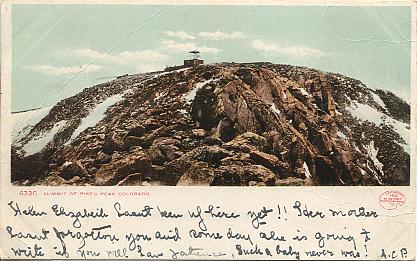 6320. SUMMIT OF PIKE'S PEAK, COLORADO.
Helen Elizabeth hasn't been up here yet!! Her mother
hasn't forgotten you and some day she is going to
write if you will have patience. Such a baby never was! A.C.P.